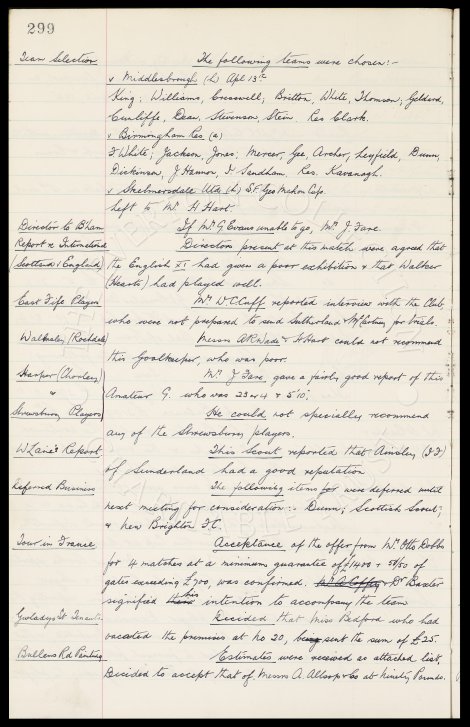 299
Team Selection
The following teams were chosen:-
v Middlesbrough (h) Apl 13th
King; Williams, Cresswell, Britton, White, Thomson; Geldard,
Cunliffe, Dean, Stevenson, Stein. Res Clark.
v Birmingham Res. (a)
F White; Jackson, Jones; Mercer, Gee, Archer, Leyfield, Dunn,
Dickinson, J Hannon, T Sandham. Res. Kavanagh.
v Skelmersdale Utd (h) S.F. Geo Mahon Cup.
Left to Mr H Hart
Director to B'ham
If Mr G Evans unable to go, Mr J Fare.
Report re International
Directors present at this match were agreed that
(Scotland v England)
the English XI had given a poor exhibition & that Walker
(Hearts) had played well.
East Fife Player
Mr W C Cuff reported interview with the Club,
who were not prepared to send Sutherland & McCartney for trials.
Walmsley (Rochdale)
Messrs A R Wade & H Hart could not recommend
this Goalkeeper, who was poor.
Harper (Chorley)
Mr J Fare, gave a fairly good report of this
Amateur G. who was 23 or 4 & 5'10".
Shrewsbury Players
He could not specially recommend
any of the Shrewsbury players.
W Lane's Report
This Scout reported that Ainsley (I.F)
of Sunderland had a good reputation
Deferred Business
The following items for were deferred until
next meeting for consideration:- Dunn; Scottish Scout;
& New Brighton F.C.
Tour in France
Acceptance of the offer from Mr Otto Dobbs
for 4 matches at a minimum guarantee of £1400 & 50/50 of
gates exceeding £700, was confirmed. Mr A Coffey & Dr Baxter
signified their his intention to accompany the team
Gwladys St Tenants
Decided that Miss Bedford who had
vacated the premises at No 20, being sent the sum of £25.
Bullens Rd Painting
Estimates were received as attached list,
Decided to accept that of Messrs A. Allsop & Co at Ninety Pounds.